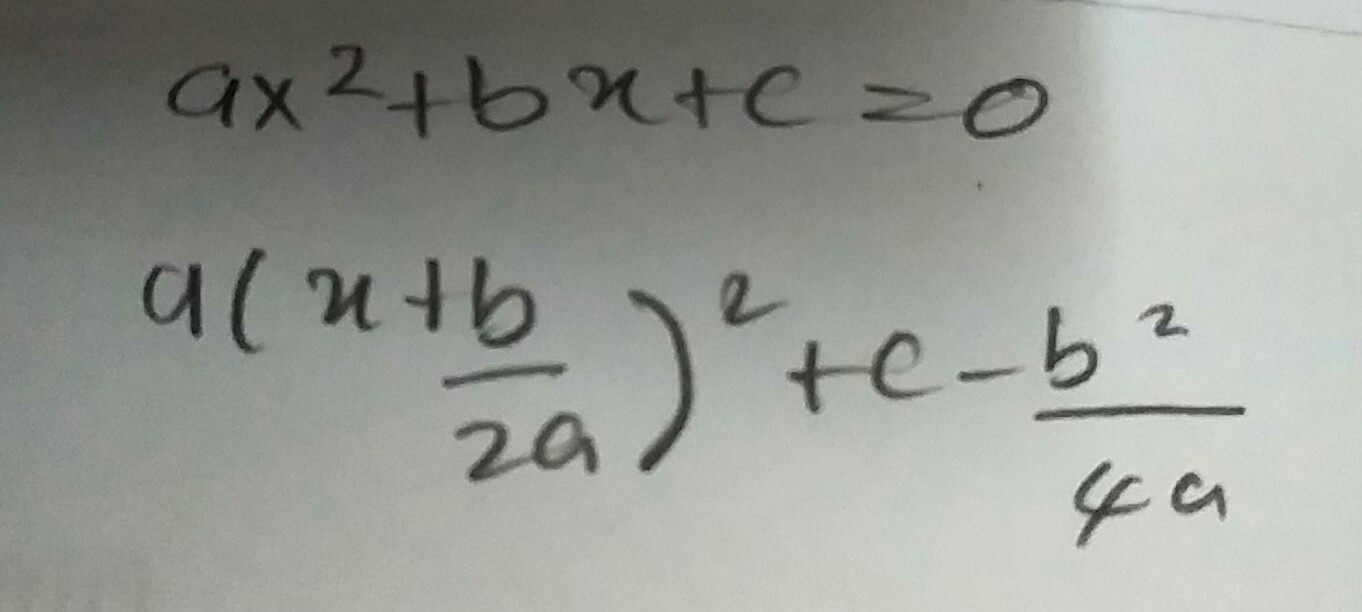 ax²+bx+c=0
a(x+b/2a)²+c-b²/4a